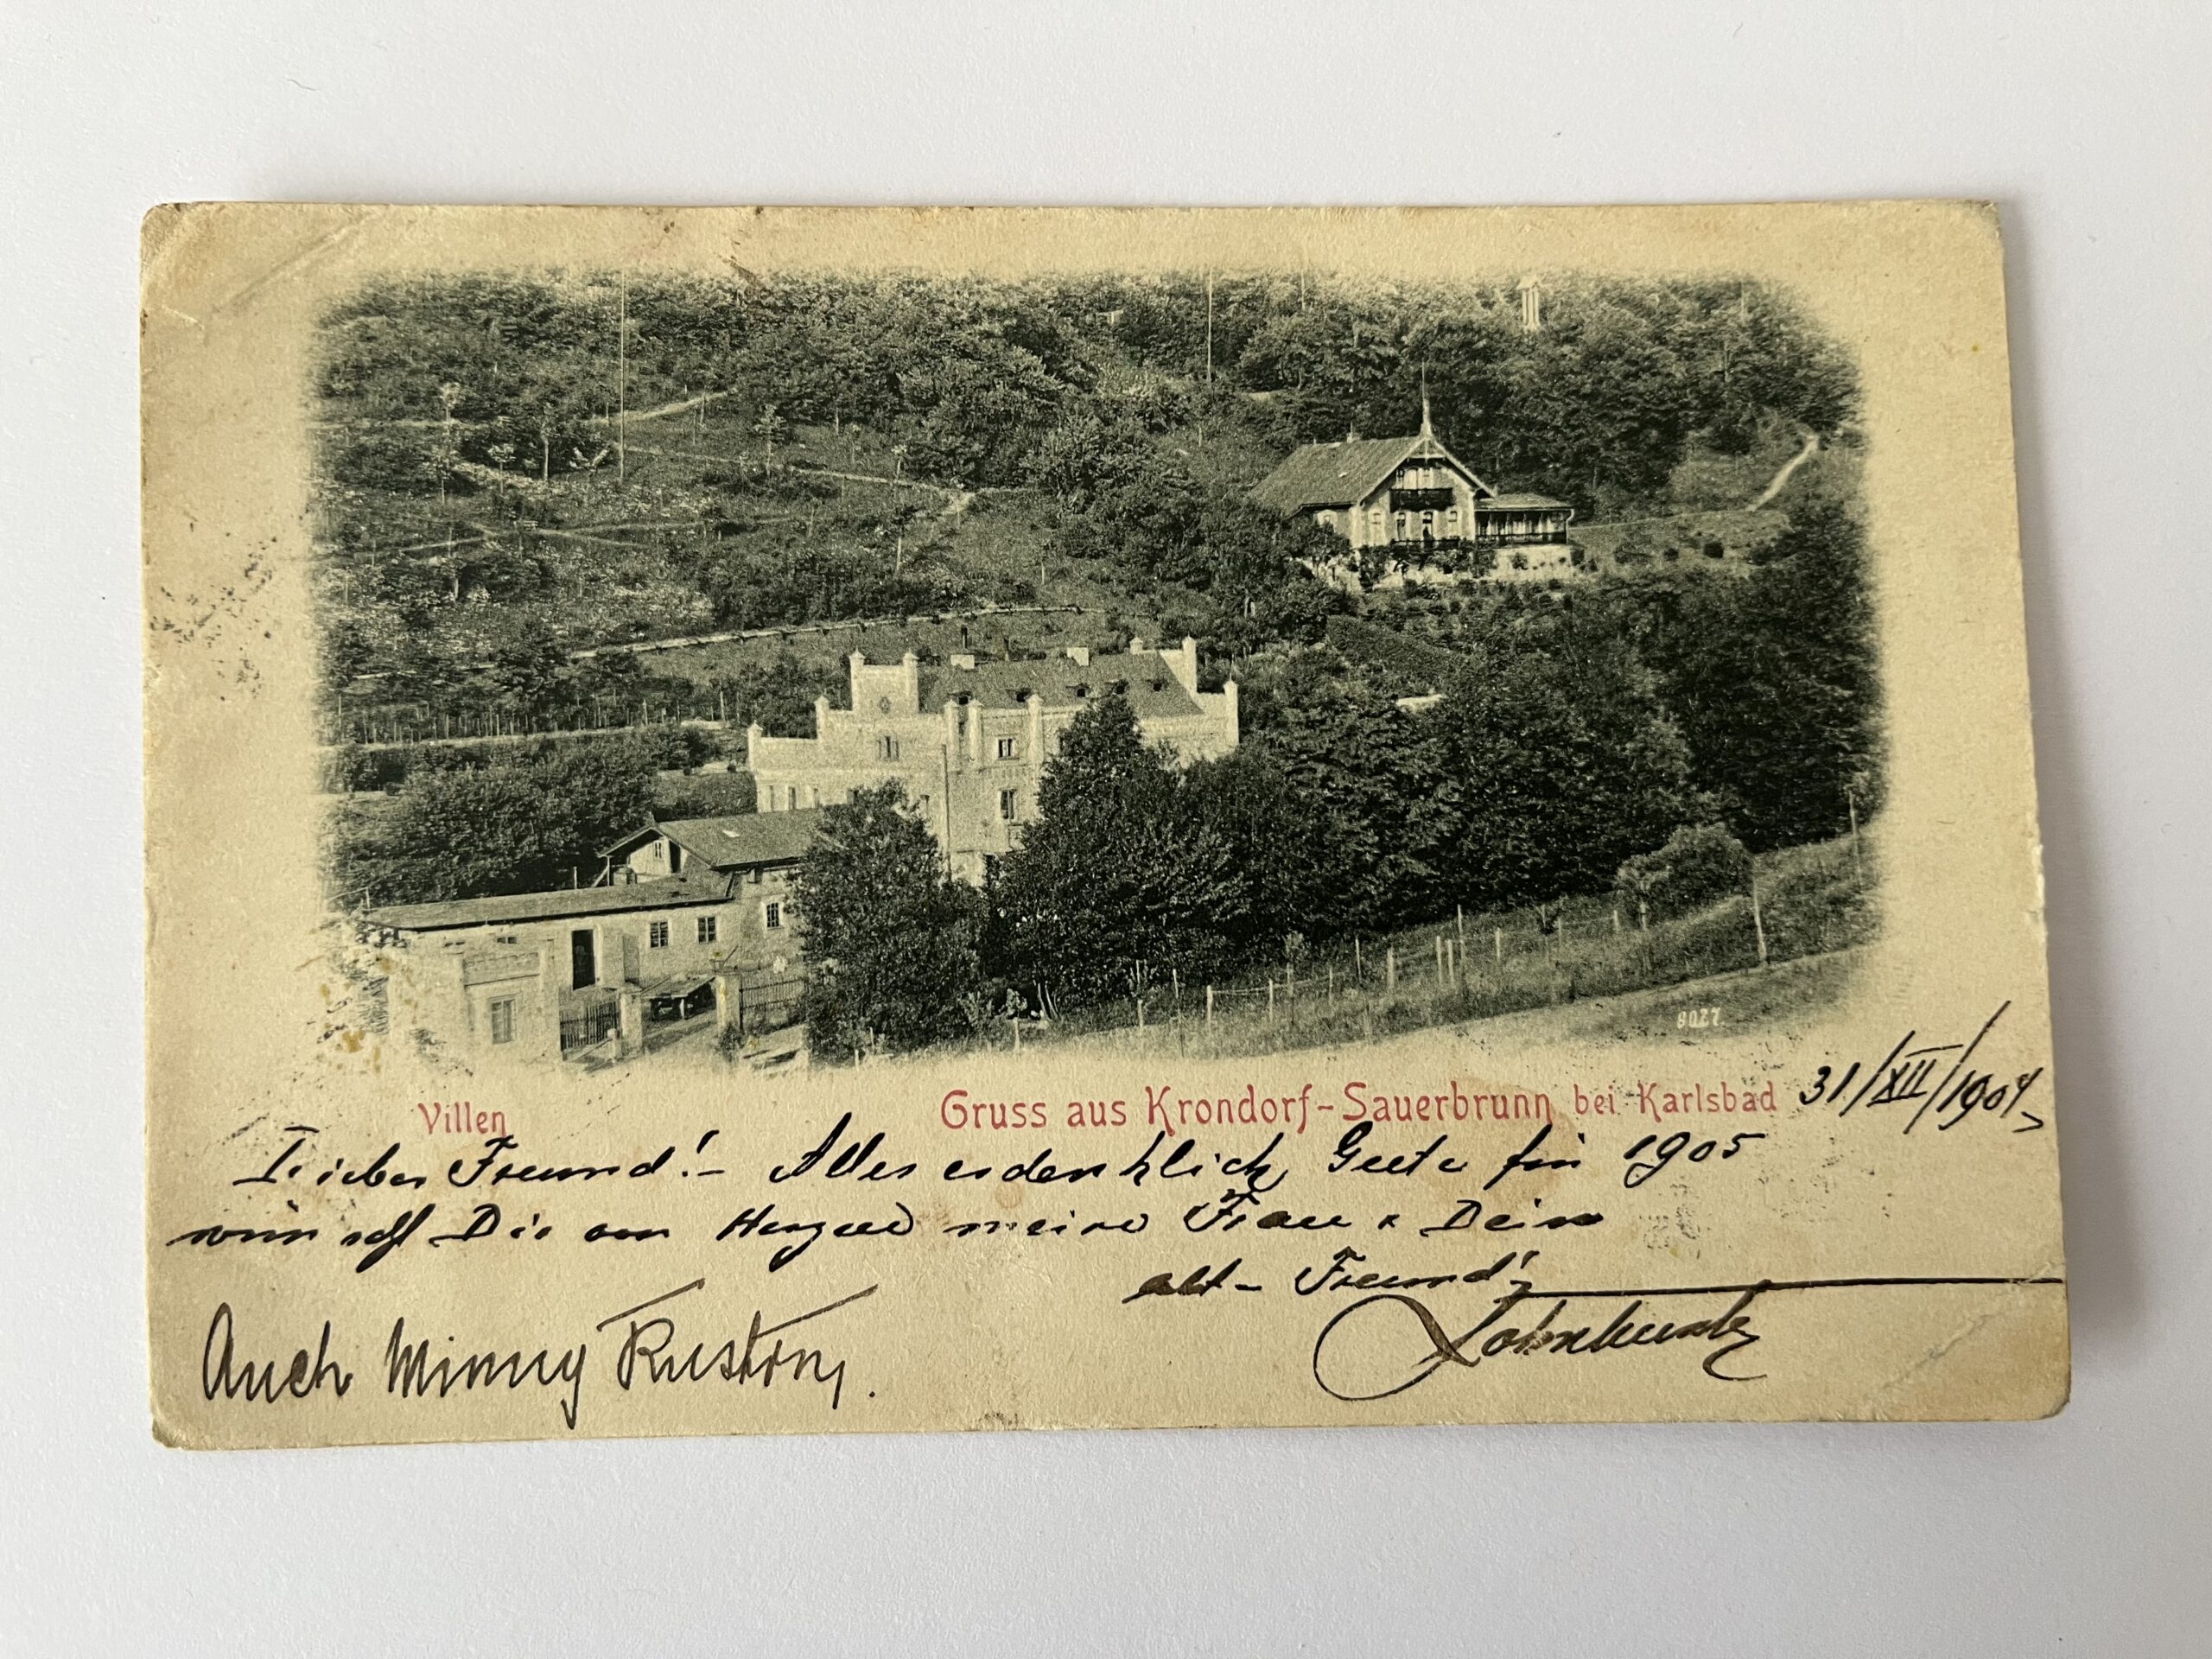 8027.
Villen
Gruss aus Krondorf-Sauerbrunn bei Karlsbad
31/XII/1904
Lieber Freund! - Alles erdenklich Gute für 1905
wünscht Dir von Herzen meine Frau & Dein
alt- Freund!
Auch Minny Ruston.